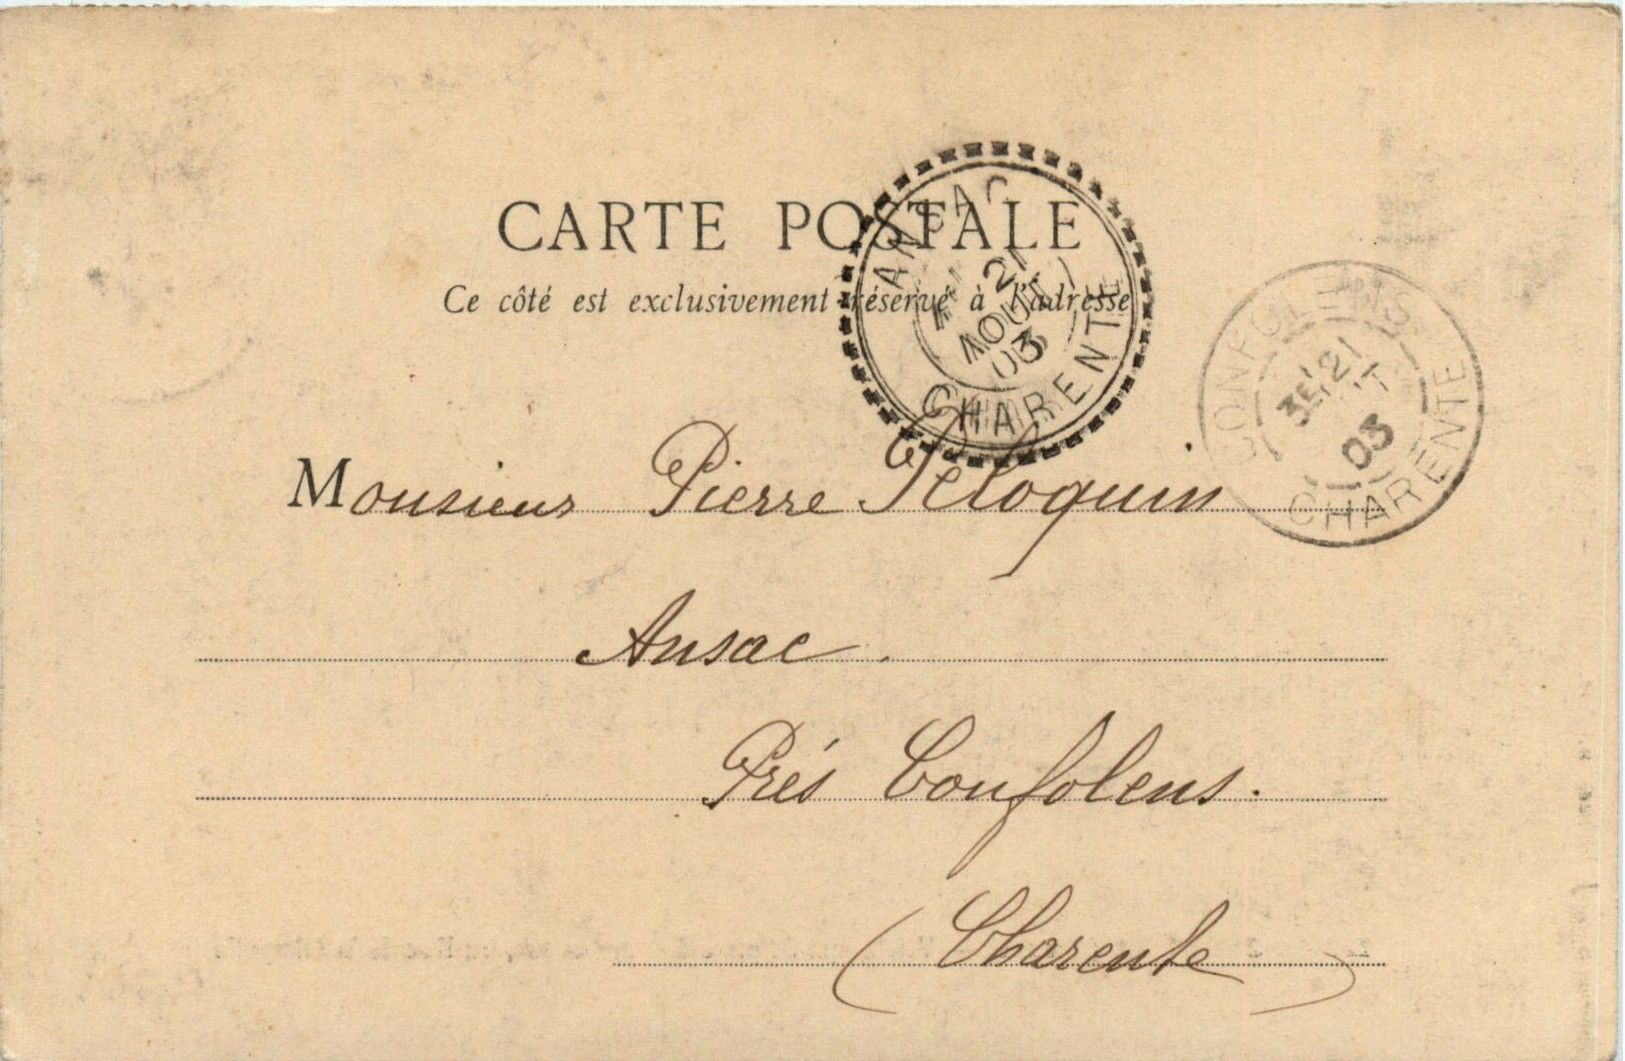 CARTE POSTALE
Ce côté est exclusivement réservé à l'adresse
ANSAC
21
AOUT
03
CHARENTE
CONFOLENS
3E 21
03
CHARENTE
Monsieur Pierre Péloquin
Ansac.
Prés Confolens.
(Charente)